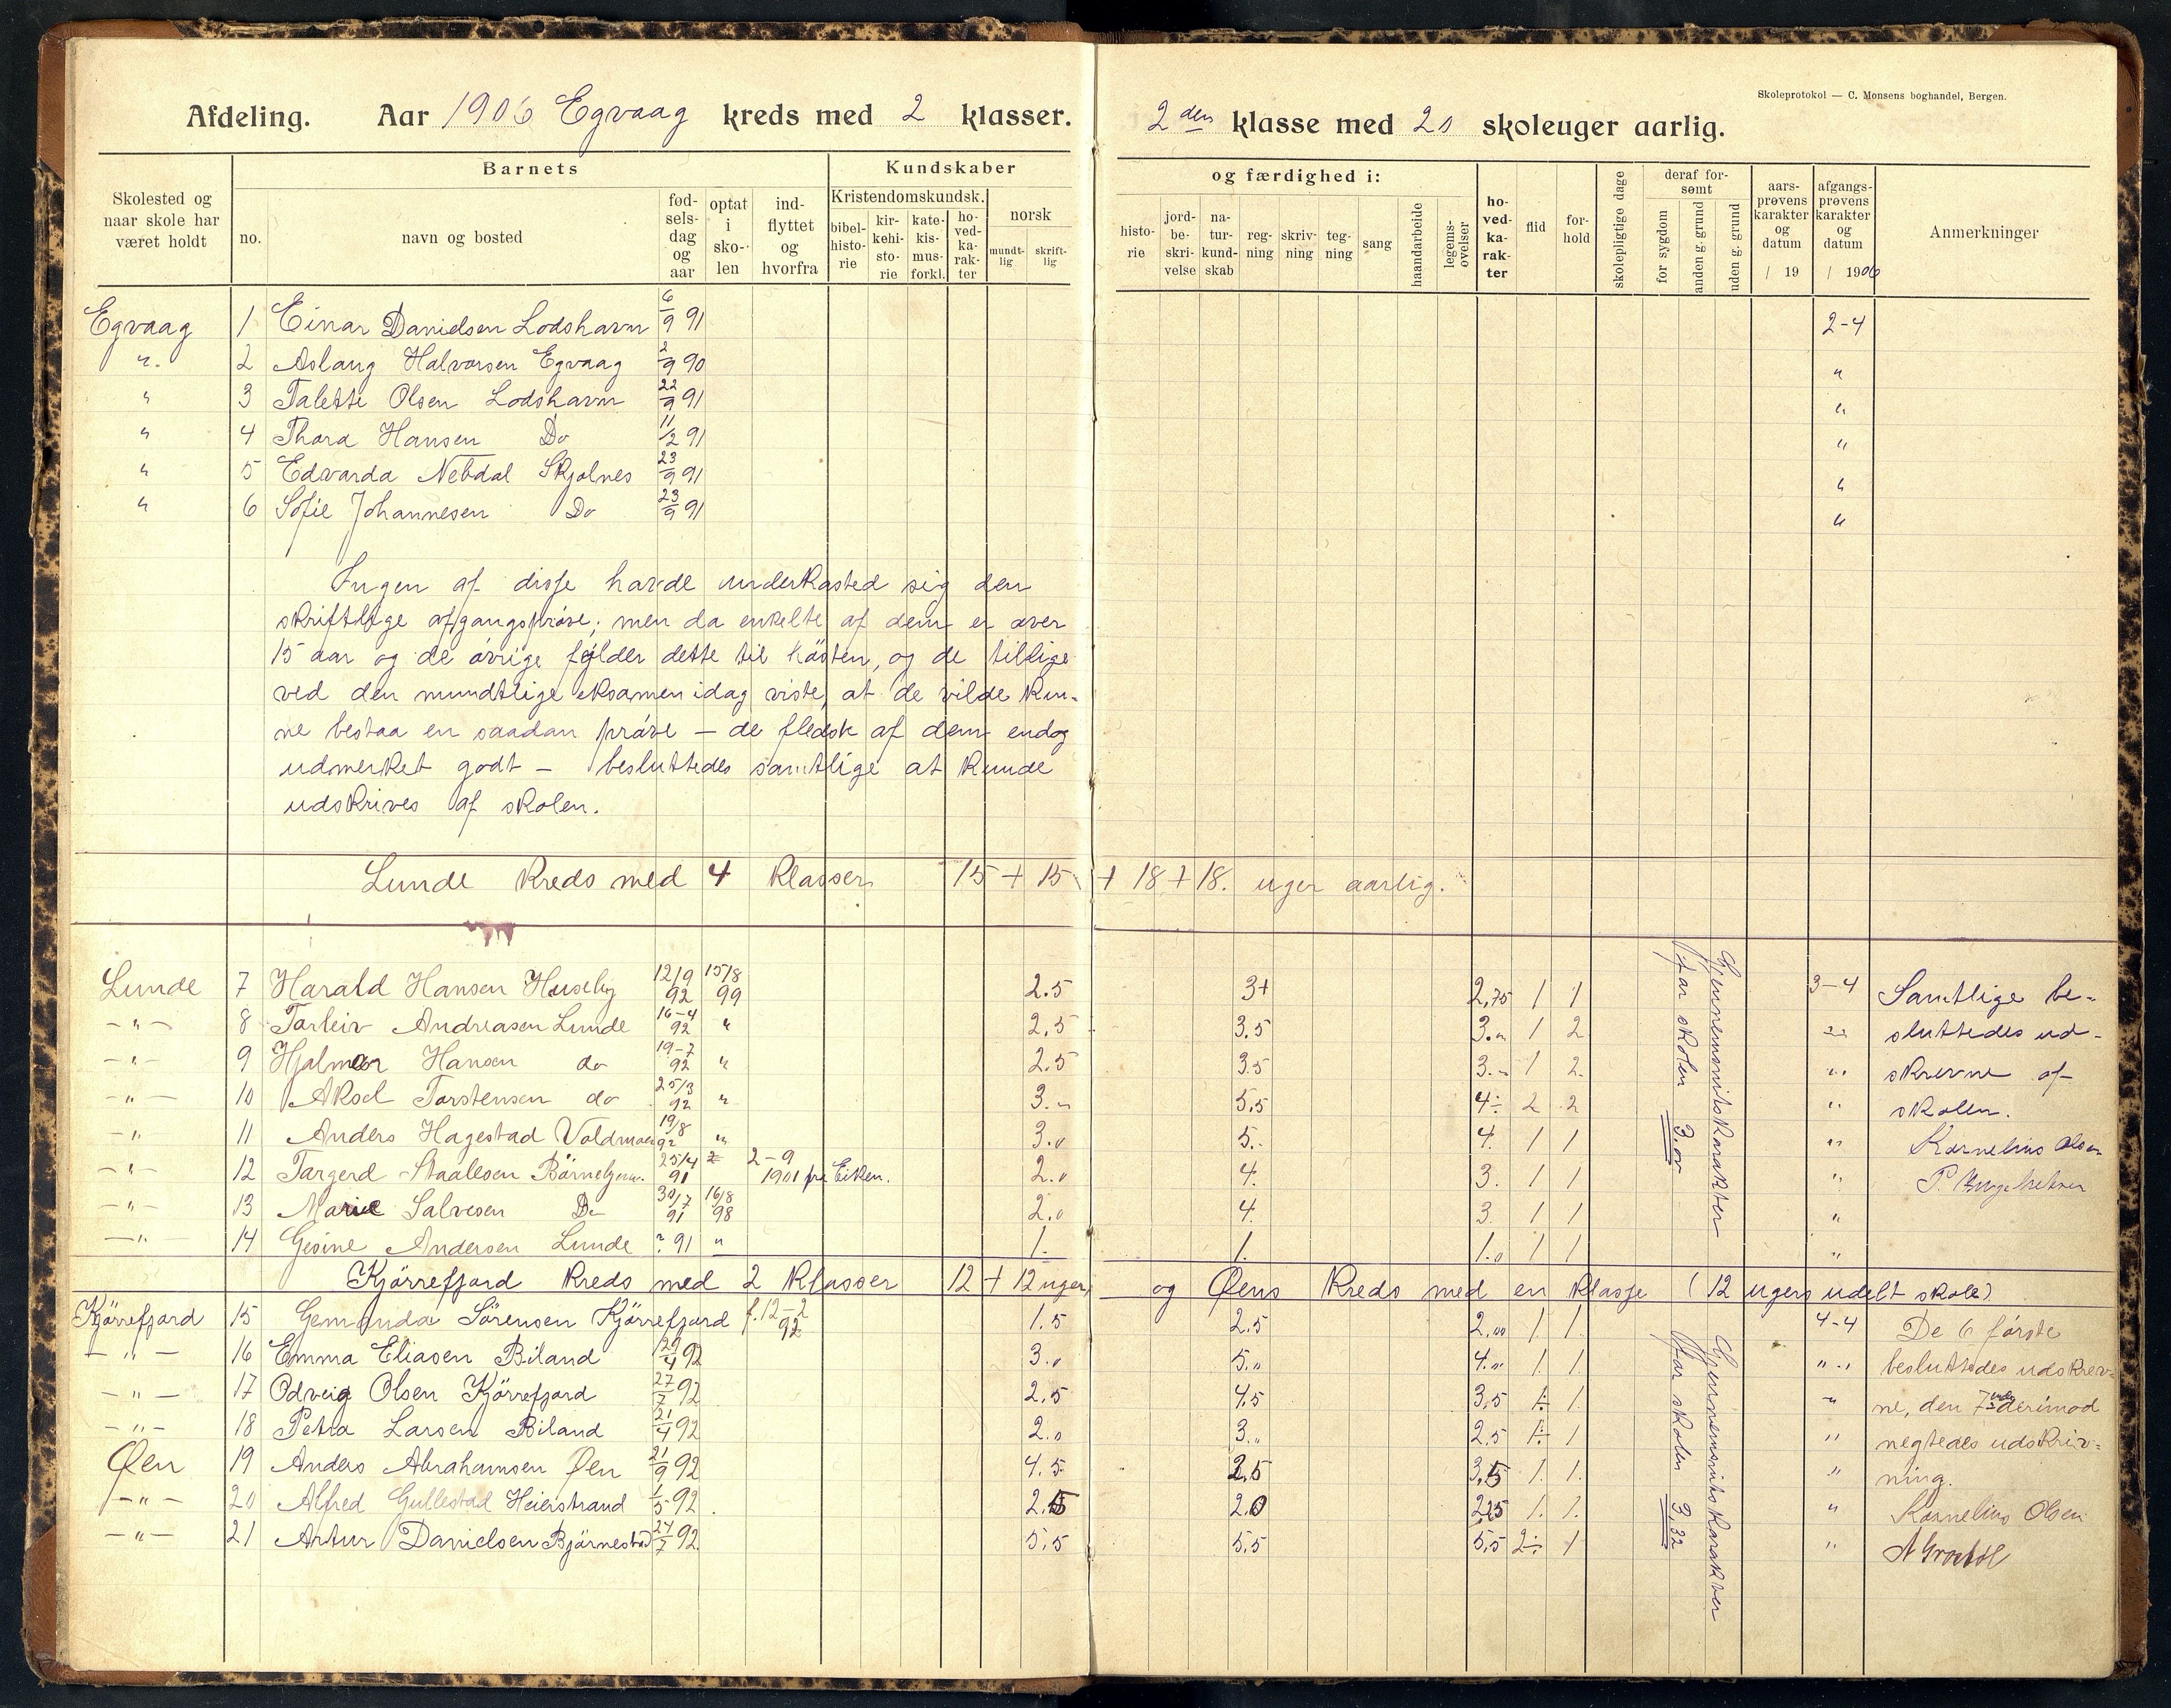 Skoleprotokol — C. Monsens boghandel, Bergen.
Afdeling. Aar 1906 Egvaag kreds med 2 klasser. 2den klasse med 20 skoleuger aarlig.
Skolested og naar skole har været holdt
Barnets
no.
navn og bosted
fød-sels-dag og aar
optat i sko-len
ind-flyttet og hvorfra
Kundskaber
Kristendomskundsk.
bibel-histo-rie
kir-kehi-sto-rie
kate-kis-mus-forkl.
ho-ved-ka-rak-ter
norsk
mundt-lig
skrift-lig
og færdighed i:
histo-rie
jord-be-skri-velse
na-tur-kund-skab
reg-ning
skriv-ning
teg-ning
sang
haandarbeide
legems-øvelser
ho-ved-ka-rak-ter
flid
for-hold
skolepligtige dage
deraf for-sømt
for sygdom
anden g. grund
uden g. grund
aars-prøvens karakter og datum / 19
afgangs-prøvens karakter og datum / 1906
Anmerkninger
Egvaag 1 Einar Danielsen Lodshavn 6/9 91 2-4
" 2 Aslaug Halvorsen Egvaag 2/9 90 "
" 3 Talette Olsen Lodshavn 22/9 91 "
" 4 Thora Hansen Do 11/2 91 "
" 5 Edvarda Nebdal Skjolnes 23/9 91 "
" 6 Sofie Johannesen Do 23/9 91 "
Ingen af disse havde underkasted sig den
skriftlige afgangsprøve; men da enkelte af dem er over
15 aar og de øvrige fylder dette til høsten, og de tillige
ved den mundtlige eksamen idag viste, at de vilde kun-
ne bestaa en saadan prøve — de fleste af dem endog
udmerket godt — besluttedes samtlige at kunde
udskrives af skolen.
Lunde kreds med 4 klasser 15 + 15 + 18 + 18. uger aarlig.
Lunde 7 Harald Hansen Huseby 12/9 92 15/8 99 2.5 3+ 2,75 1 1 3-4 Samtlige be-
-"- 8 Tarleiv Andreasen Lunde 16-4 92 " 2.5 3.5 3." 1 2 " sluttedes ud-
-"- 9 Hjalmar Hansen do 19-7 92 " 2.5 3.5 3.- 1 2. " skrevne af
-"- 10 Aksel Torstensen do 25/3 92 " 3.- 5.5 4÷ 2 2 " skolen.
-"- 11 Anders Hagestad 19/8 92 " 3.0 5.- 4. 1 1 " Kornelius Olsen
-"- 12 Targerd Staalesen 25/4 91 2-9 1901 fra Eiken. 2.0 4. 3. 1 1 "
-"- 13 Marie Salvesen Do 30/7 91 16/8 98 2.0 4. 3. 1 1 "
-"- 14 Gesine Andersen Lunde ? 91 " 1. 1. 1.0 1 1 "
Gjennemsnitskarakter
for skolen 3.00
Kjørrefjord kreds med 2 klasser 12 + 12 uger og Øens kreds med en klasse (12 ugers udelt skole)
Kjørrefjord 15 Gemunda Sørensen Kjørrefjord f. 12-2 92 1.5 2.5 2,00 1 1. 4-4 De 6 første
-"- 16 Emma Eliasen Biland 29/4 92 3.0 5." 4." 1. 1. " besluttedes udskrev-
-"- 17 Odveig Olsen Kjørrefjord 27/7 92 2.5 4.5 3,5 1÷ 1. " ne, den 7nde derimod
-"- 18 Petra Larsen Biland 21/4 92 2.0 3." 2.5 1÷ 1 " negtedes udskriv-
Øen 19 Anders Abrahamsen Øen 21/9 92 4.5 2.5 3,5 1. 1. " ning.
-"- 20 Alfred Gullestad Heierstrand 1/5 92 2.5 2.0 2,25 1. 1. " Kornelius Olsen
-"- 21 Artur Danielsen Bjørnestad 24/7 92 5,5 5,5 5,5 2÷ 1 "
Gjennemsnitskarakter
for skolen 3,32